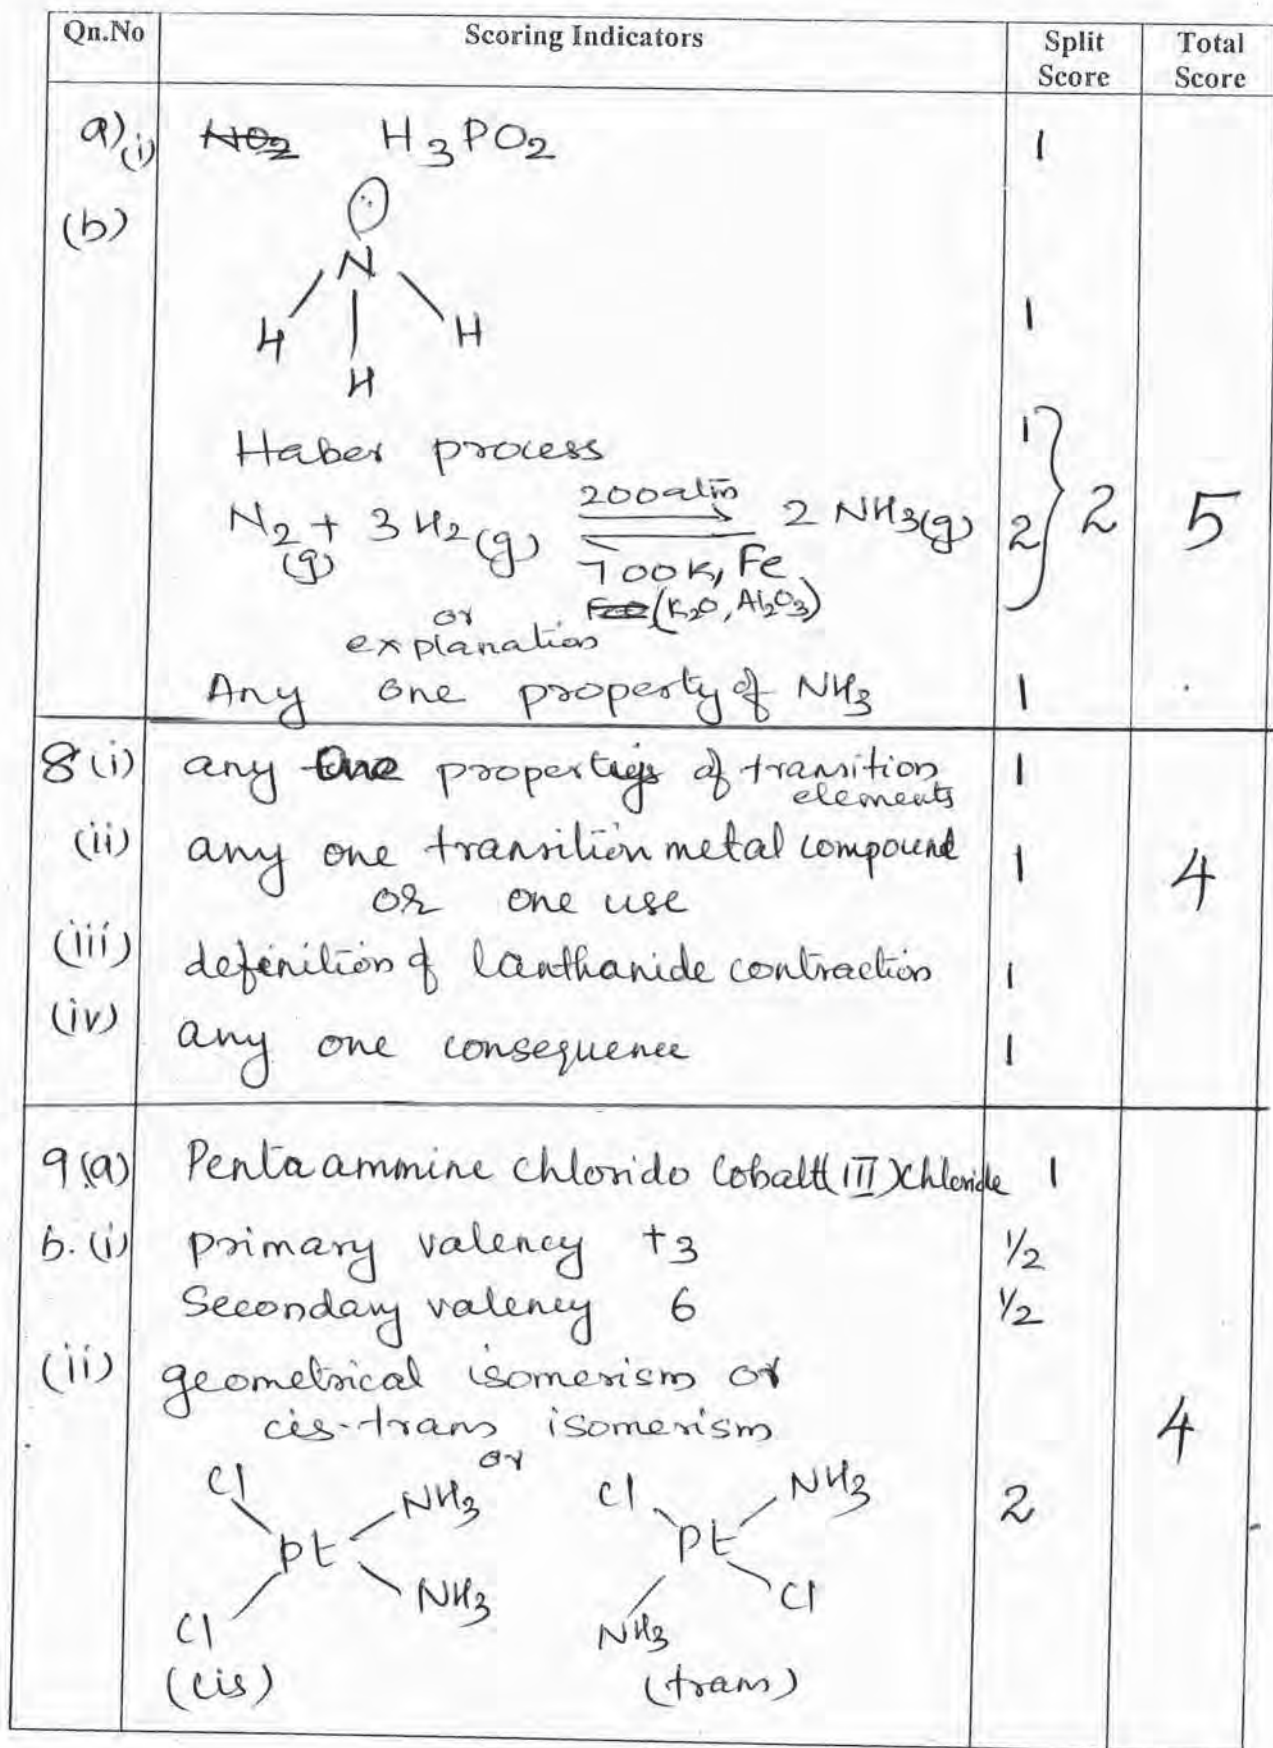 Qn.No Scoring Indicators Split Score Total Score
a)(i) NO2 H3PO2 1
(b)
N
H H 1
H
Haber process 1
N2(g) + 3H2(g) 200atm 2NH3(g) 2 } 2 5
700K, Fe
(K2O, Al2O3)
or
explanation
Any one property of NH3 1
8(i) any one properties of transition elements 1
(ii) any one transition metal compound 1 4
or one use
(iii) definition of lanthanide contraction 1
(iv) any one consequence 1
9(a) Pentaammine chlorido Cobalt(III)Chloride 1
b.(i) primary valency +3 1/2
Secondary valency 6 1/2
(ii) geometrical isomerism or
cis-trans isomerism 4
or
Cl NH3 Cl NH3 2
Pt Pt
Cl NH3 NH3 Cl
(cis) (trans)